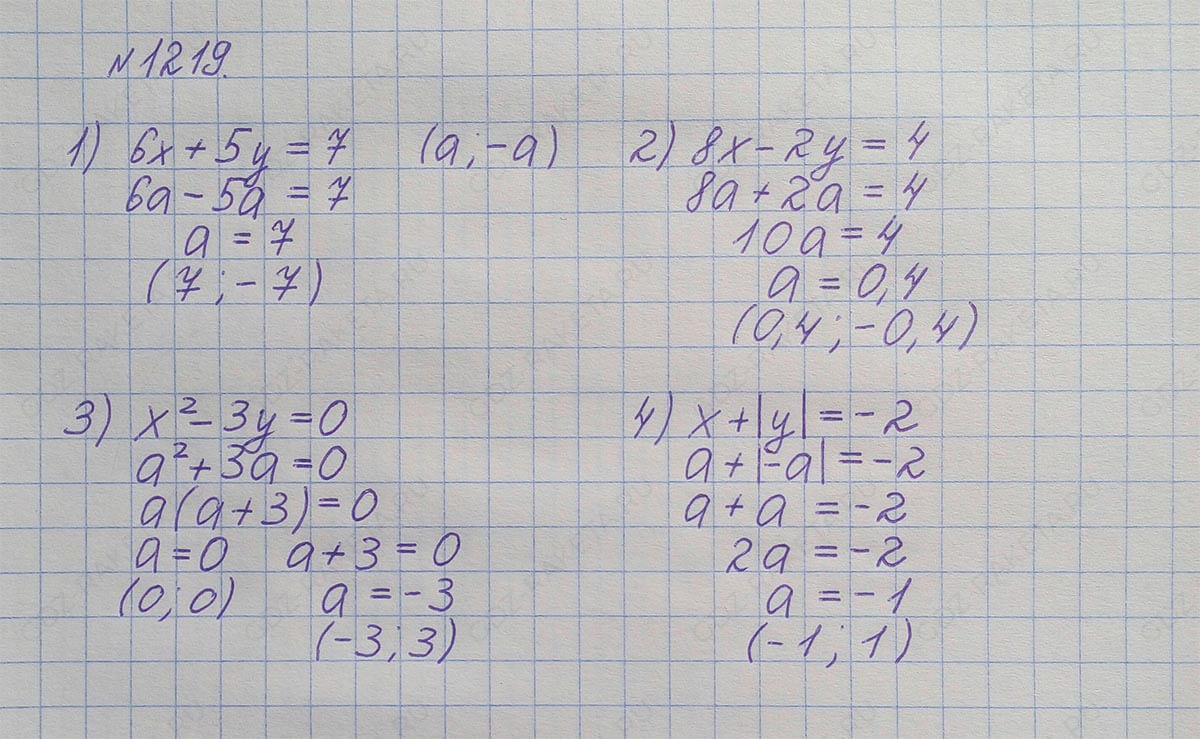 №1219.
1) 6x + 5y = 7 (a; -a)
6a - 5a = 7
a = 7
(7; -7)
2) 8x - 2y = 4
8a + 2a = 4
10a = 4
a = 0,4
(0,4; -0,4)
3) x² - 3y = 0
a² + 3a = 0
a(a + 3) = 0
a = 0 a + 3 = 0
(0; 0) a = -3
(-3; 3)
4) x + |y| = -2
a + |-a| = -2
a + a = -2
2a = -2
a = -1
(-1; 1)